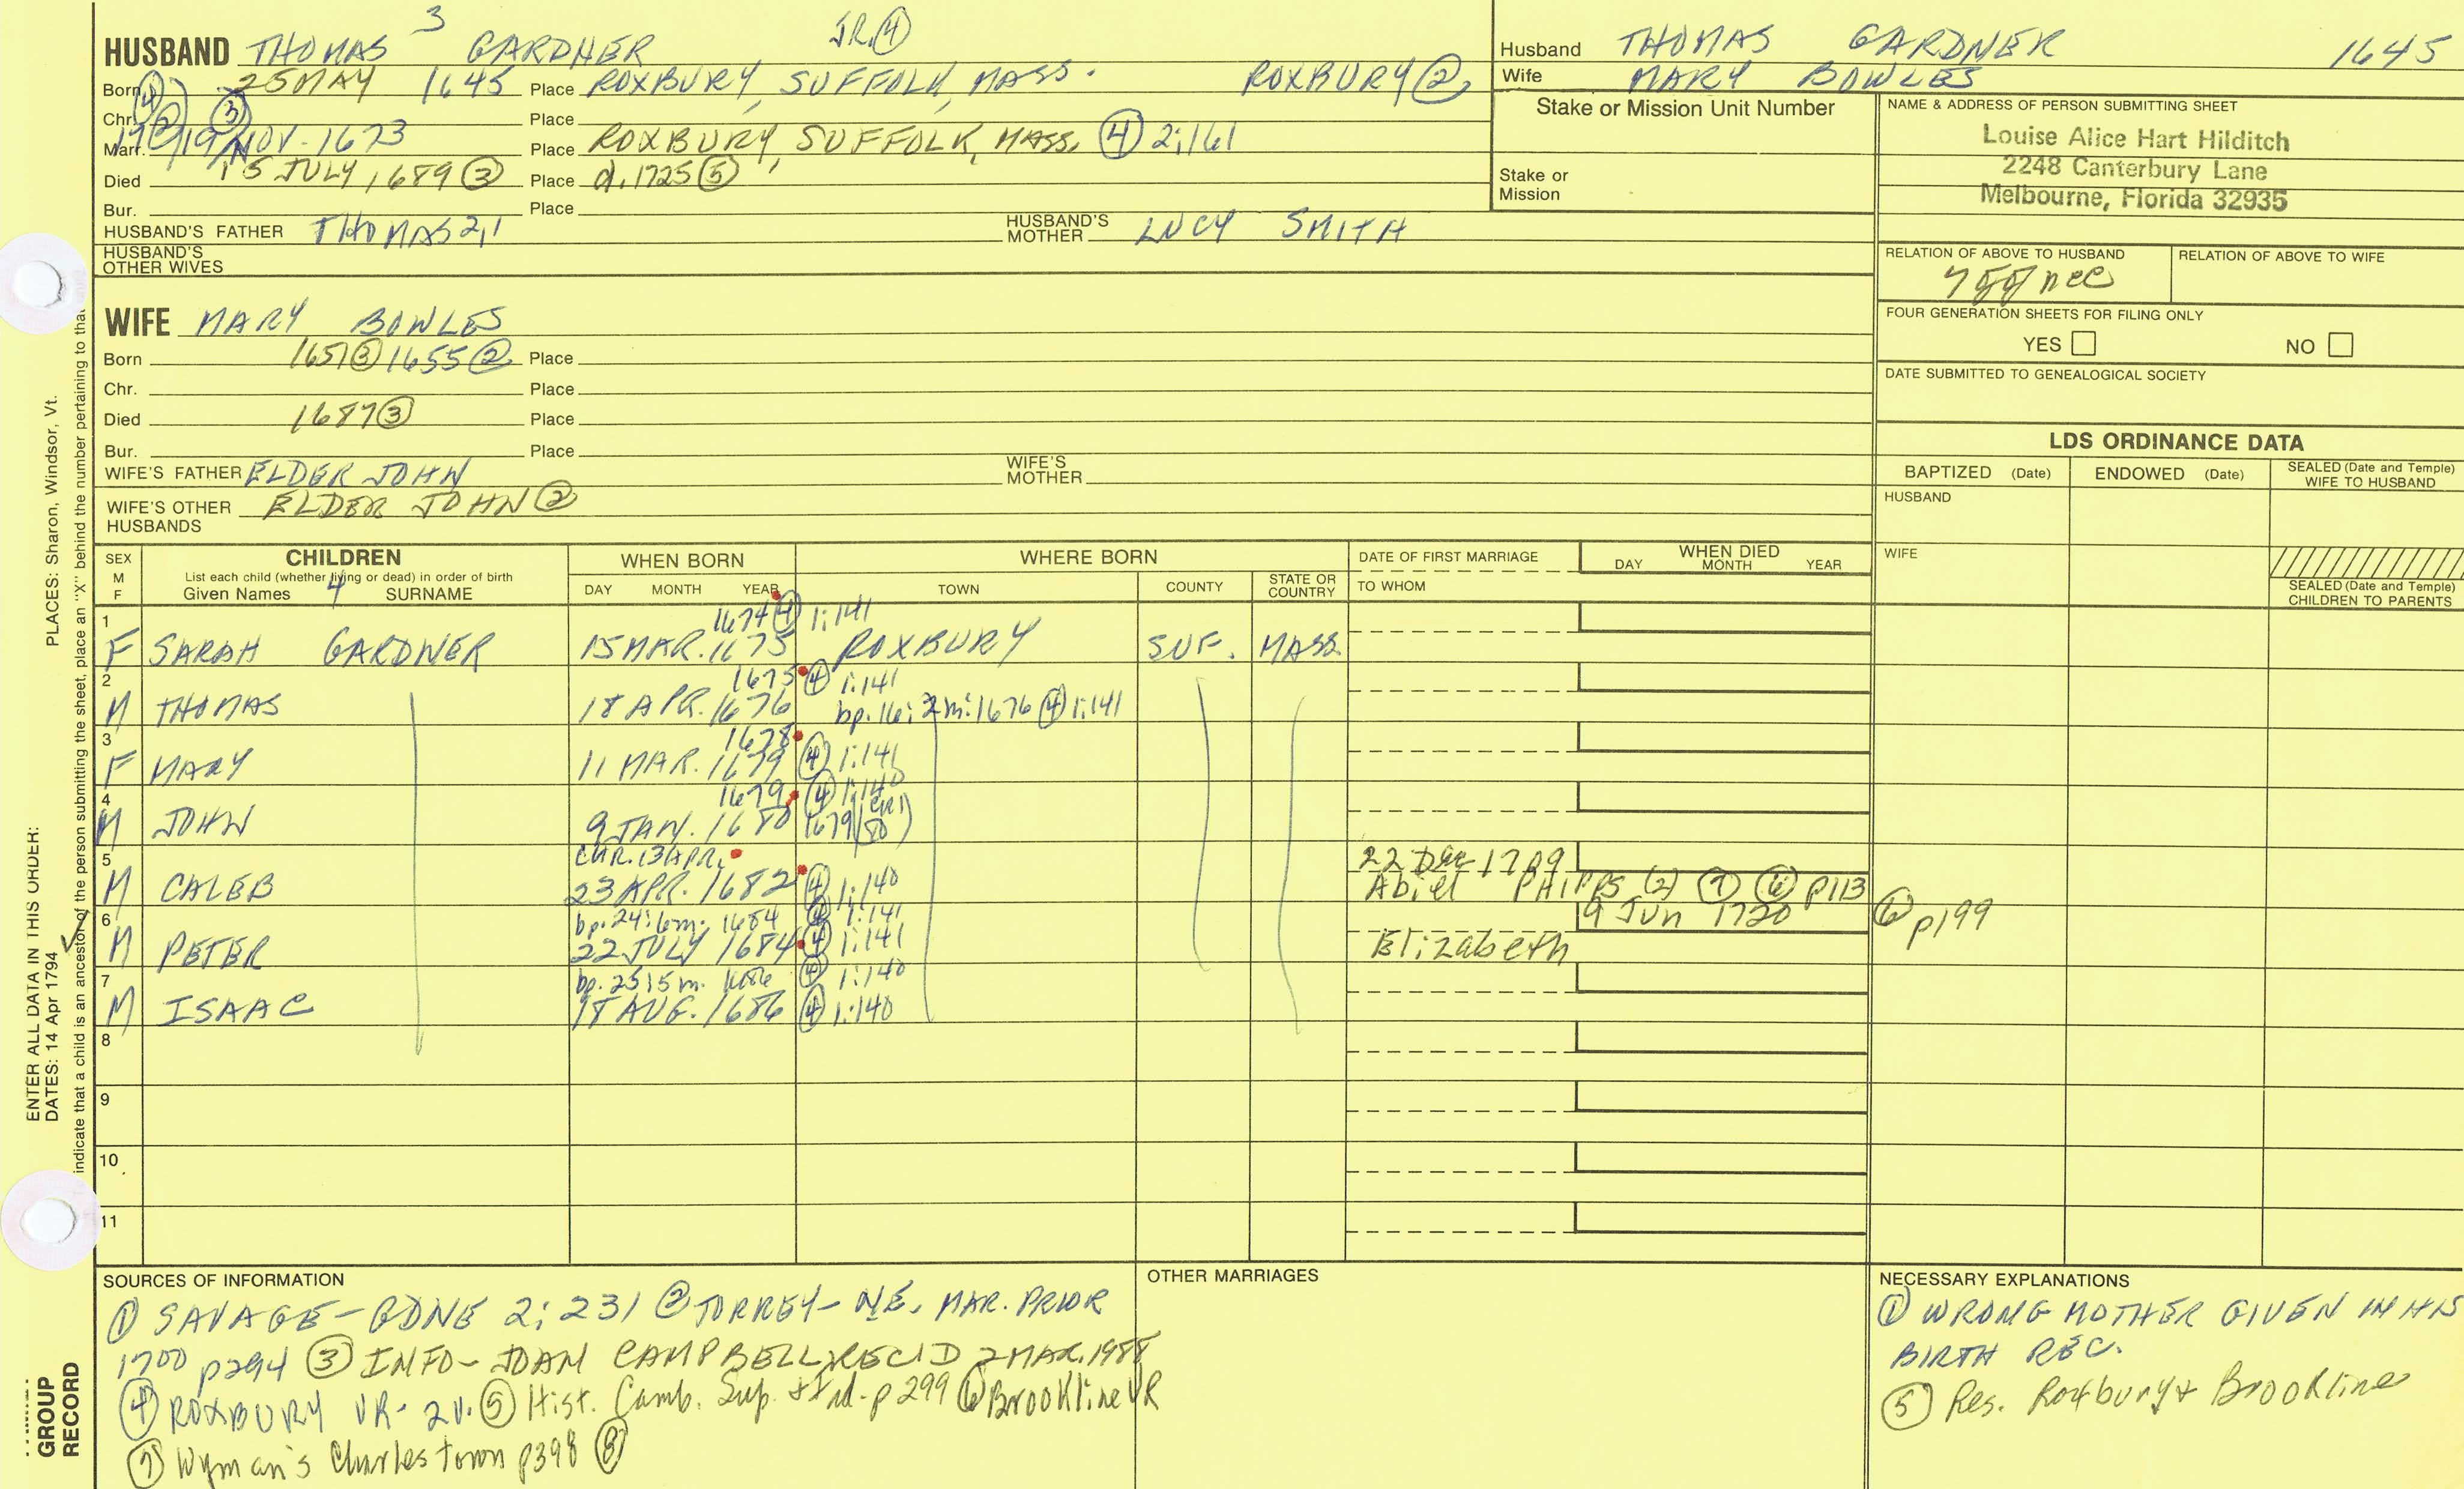 3 JR. ④
HUSBAND THOMAS GARDNER
Born ④ 25 MAY 1645 Place ROXBURY, SUFFOLK, MASS. ROXBURY ②
Chr. ② ③ Place
Marr. 17 19 NOV. 1673 Place ROXBURY, SUFFOLK, MASS. ④ 2:161
Died 15 JULY, 1689 ③ Place d. 1725 ⑤
Bur. Place
HUSBAND'S FATHER THOMAS 2,1 HUSBAND'S MOTHER LUCY SMITH
HUSBAND'S OTHER WIVES
Husband THOMAS GARDNER 1645
Wife MARY BOWLES
Stake or Mission Unit Number
Stake or Mission
NAME & ADDRESS OF PERSON SUBMITTING SHEET
Louise Alice Hart Hilditch
2248 Canterbury Lane
Melbourne, Florida 32935
RELATION OF ABOVE TO HUSBAND RELATION OF ABOVE TO WIFE
7 gg nec
FOUR GENERATION SHEETS FOR FILING ONLY
YES NO
DATE SUBMITTED TO GENEALOGICAL SOCIETY
WIFE MARY BOWLES
Born 1651 ③ 1655 ② Place
Chr. Place
Died 1687 ③ Place
Bur. Place
WIFE'S FATHER ELDER JOHN WIFE'S MOTHER
WIFE'S OTHER HUSBANDS ELDER JOHN ②
LDS ORDINANCE DATA
BAPTIZED (Date) ENDOWED (Date) SEALED (Date and Temple) WIFE TO HUSBAND
HUSBAND
WIFE
SEALED (Date and Temple) CHILDREN TO PARENTS
SEX M F
CHILDREN
List each child (whether living or dead) in order of birth
Given Names 4 SURNAME
WHEN BORN DAY MONTH YEAR
WHERE BORN TOWN COUNTY STATE OR COUNTRY
DATE OF FIRST MARRIAGE TO WHOM
WHEN DIED DAY MONTH YEAR
1 1674 ④ 1:141
F SARAH GARDNER 15 MAR. 1675 ROXBURY SUF. MASS.
2 1675 ④ 1:141
M THOMAS 18 APR. 1676 bp. 16: 2m: 1676 ④ 1:141
3 1678
F MARY 11 MAR. 1679 ④ 1:141
4 1679 ④ 1:140
M JOHN 9 JAN. 1680 1679/80 (GR1)
5 CHR. 13 APR. 22 Dec 1709
M CALEB 23 APR. 1682 ④ 1:140 Abiel PHIPPS (2) ⑦ ⑥ p113
6 bp. 24: 6m. 1684 ④ 1:141 9 Jun 1720 ⑥ p199
M PETER 22 JULY 1684 ④ 1:141 Elizabeth
7 bp. 25: 5m. 1686 ④ 1:140
M ISAAC 18 AUG. 1686 ④ 1:140
8
9
10
11
SOURCES OF INFORMATION
① SAVAGE - GDNE 2: 231 ② TORREY - N.E. MAR. PRIOR
1700 p294 ③ INFO - JOAN CAMPBELL, REC'D 2 MAR. 1988
④ ROXBURY VR. 2v. ⑤ Hist. Camb. Sup. + Ind. p 299 ⑥ Brookline VR
⑦ Wyman's Charlestown p398 ⑧
OTHER MARRIAGES
NECESSARY EXPLANATIONS
① WRONG MOTHER GIVEN IN HIS
BIRTH REC.
⑤ Res. Roxbury + Brookline
ENTER ALL DATA IN THIS ORDER:
DATES: 14 Apr 1794
PLACES: Sharon, Windsor, Vt.
indicate that a child is an ancestor of the person submitting the sheet, place an "X" behind the number pertaining to that
GROUP
RECORD